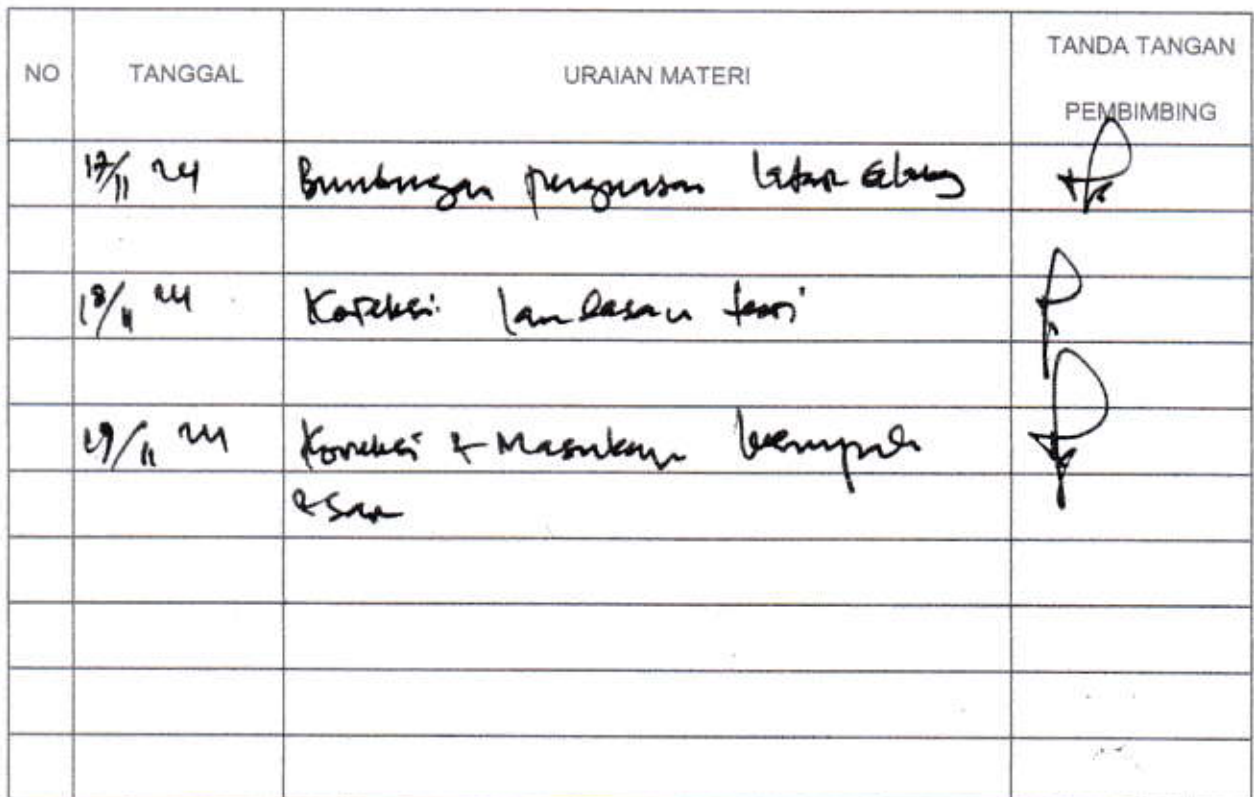 NO TANGGAL URAIAN MATERI TANDA TANGAN PEMBIMBING
17/11 24 Bimbingan latar
18/11 24 Koreksi landasan teori
19/11 24 Koreksi & Masukan
& Saran